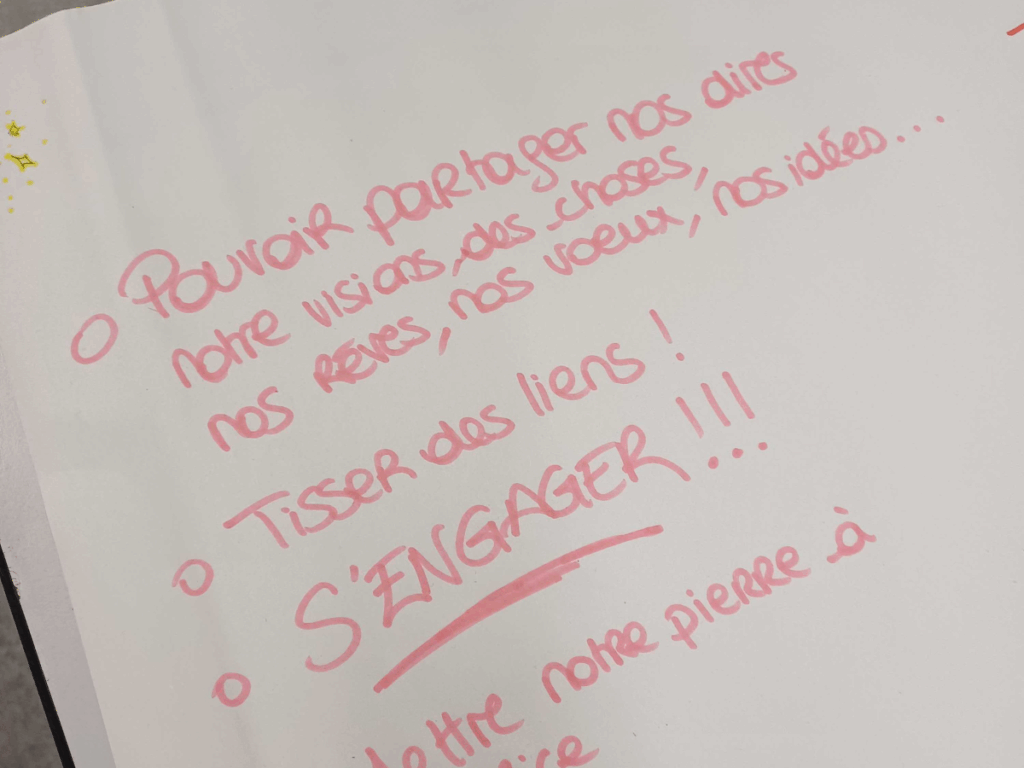 O Pouvoir partager nos dires
notre visions, des choses,
nos rêves, nos voeux, nos idées...
O Tisser des liens !
O S'ENGAGER !!!
notre pierre à